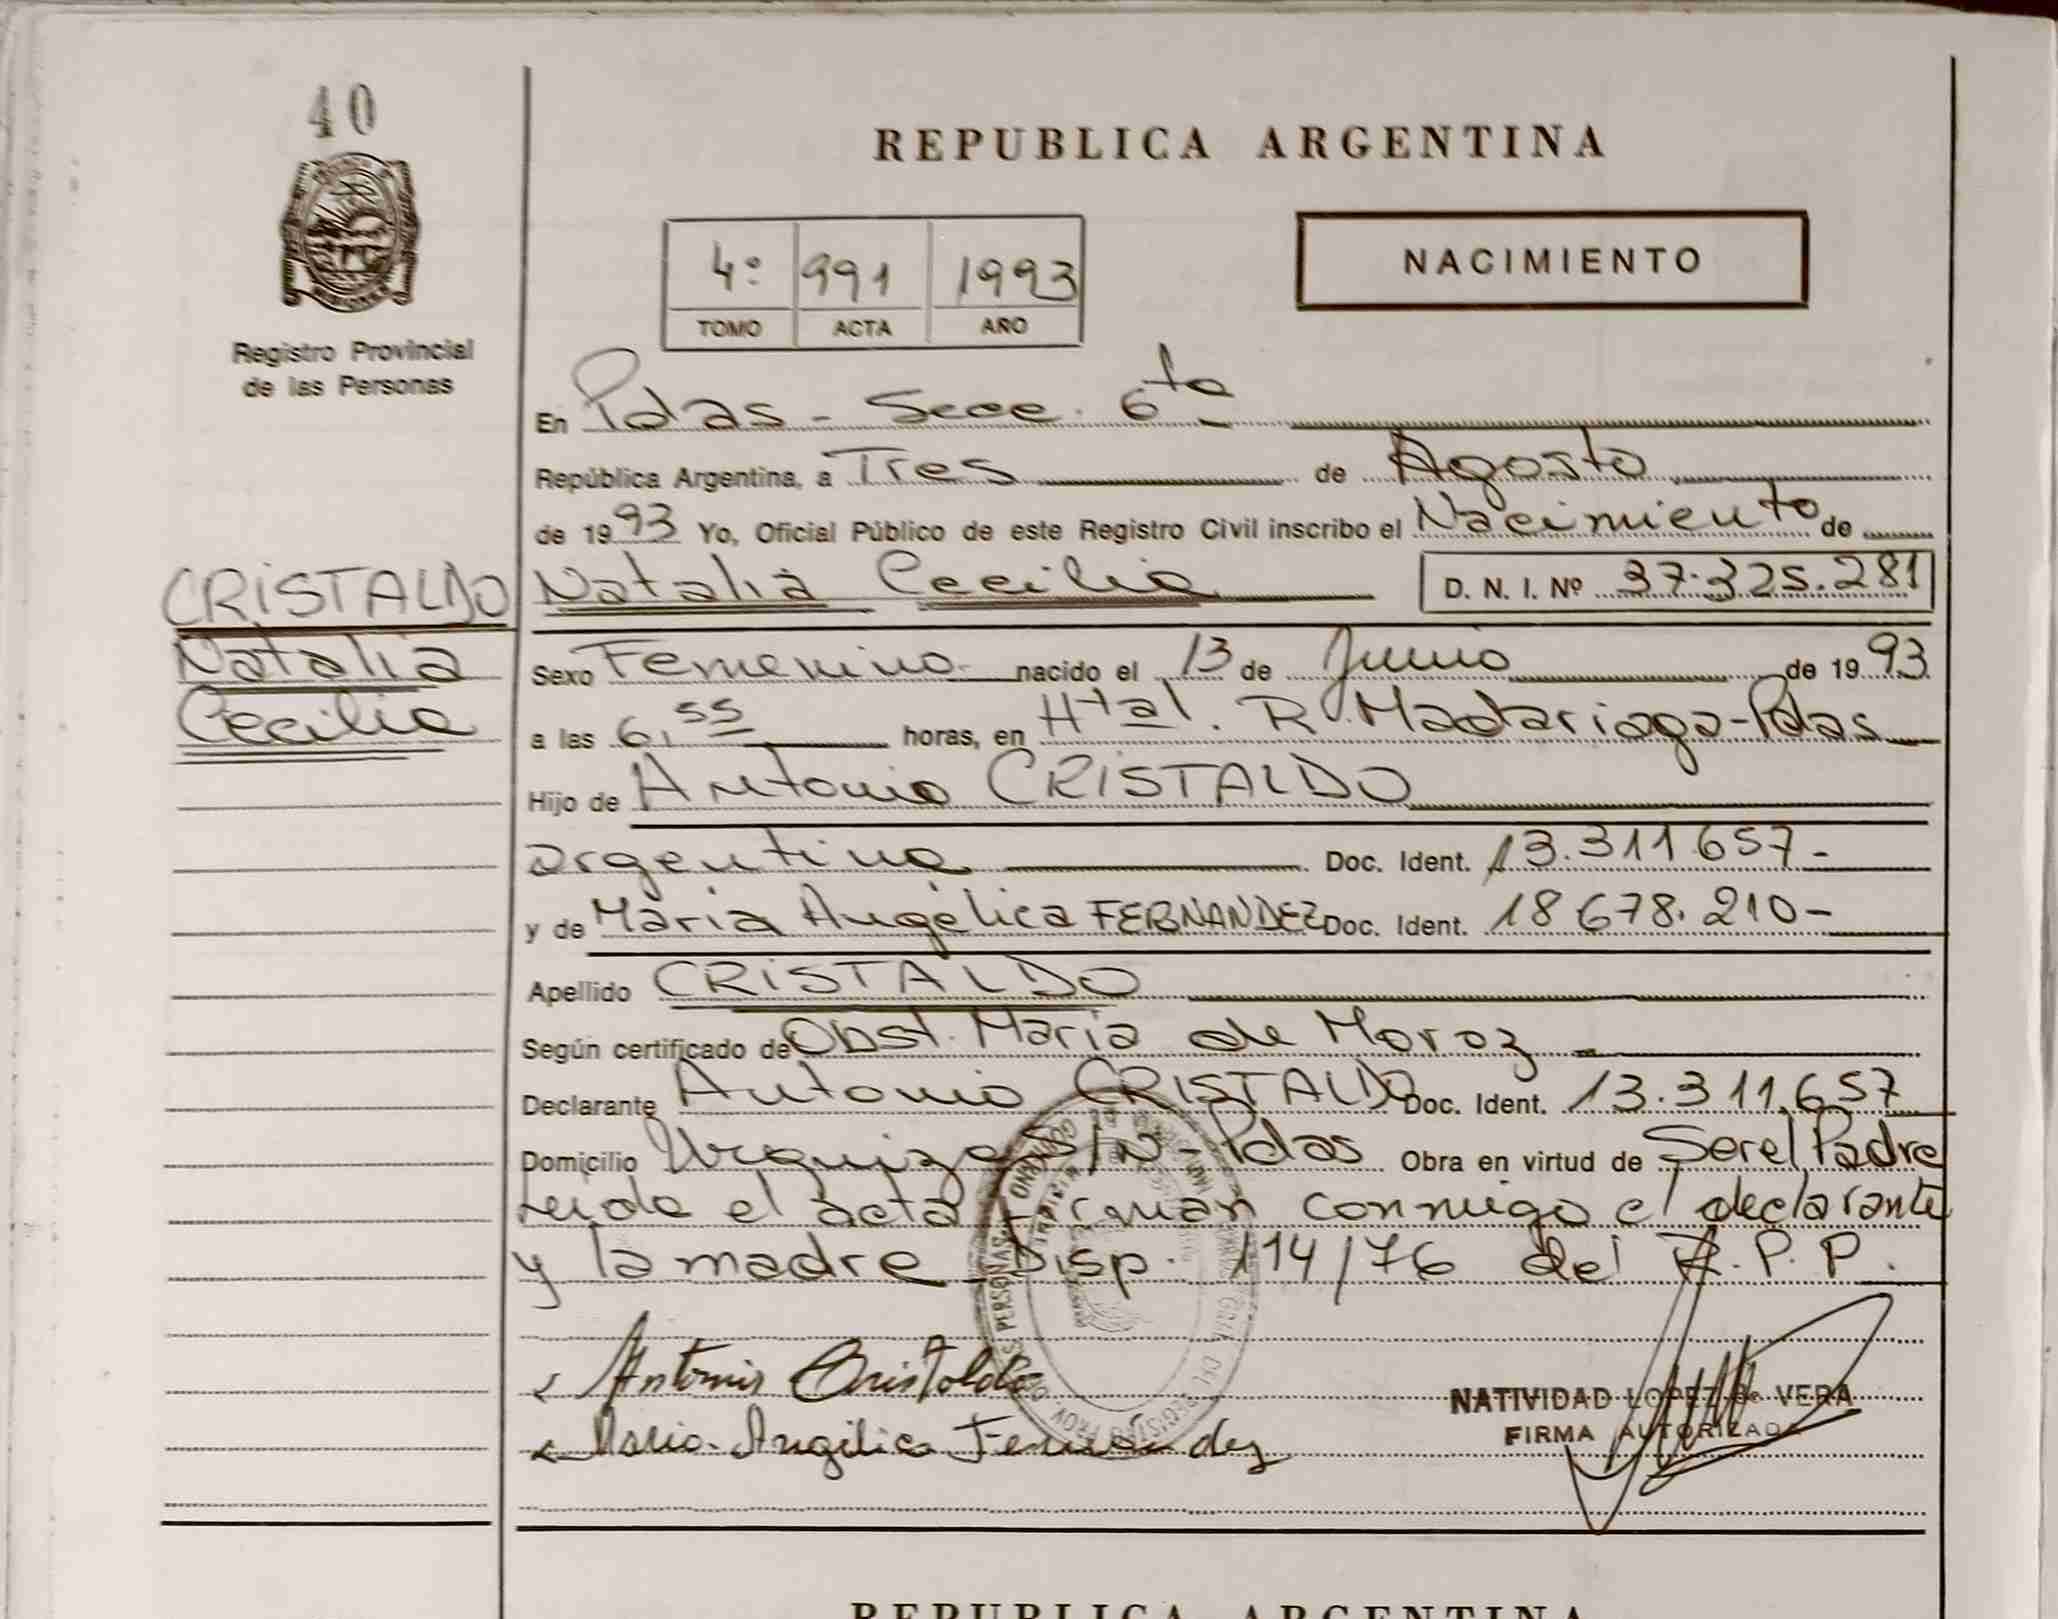 40
REPUBLICA ARGENTINA
4º 991 1993
TOMO ACTA AÑO
NACIMIENTO
Registro Provincial
de las Personas
En Pdas - Secc. 6ta
República Argentina, a Tres de Agosto
de 1993 Yo, Oficial Público de este Registro Civil inscribo el Nacimiento de
CRISTALDO
Natalia
Cecilia
Natalia Cecilia D. N. I. Nº 37.325.281
Sexo Femenino nacido el 13 de Junio de 1993
a las 6,55 horas, en Htal. R. Madariaga - Pdas
Hijo de Antonio CRISTALDO
argentina Doc. Ident. 13.311.657-
y de María Angélica FERNANDEZ Doc. Ident. 18.678.210-
Apellido CRISTALDO
Según certificado de Obst. María de Moroz
Declarante Antonio CRISTALDO Doc. Ident. 13.311.657
Domicilio Urquiza S/N - Pdas Obra en virtud de Ser el Padre
leida el acta firman conmigo el declarante
y la madre Disp. 114/76 del R.P.P.
Antonio Cristaldo
Maria Angélica Fernández
NATIVIDAD LOPEZ de VERA
FIRMA AUTORIZADA
REPUBLICA ARGENTINA